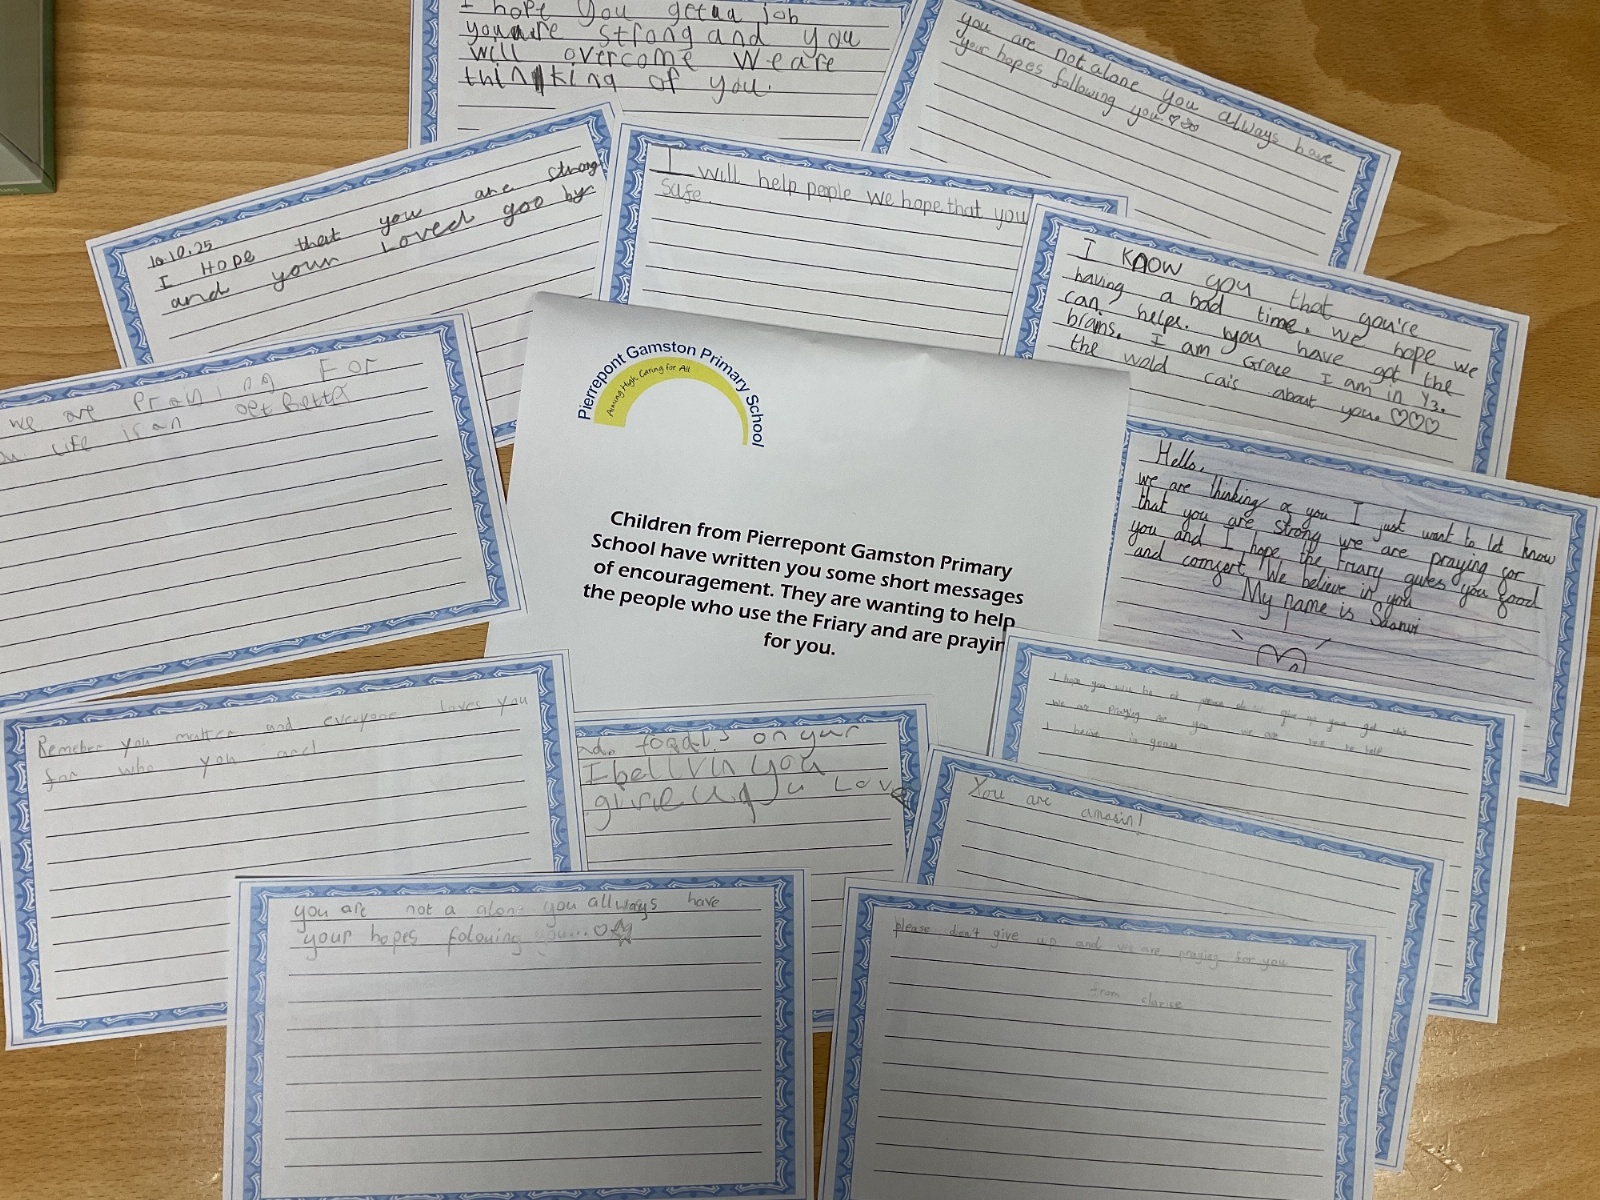 I hope you getaa job
youare strong and you
will overcome We are
thinking of you.
you are not alone you always have
your hopes following you.
10.10.25
I Hope that you are strong
and your Loved goo by
I will help people we hope that you
safe.
I know you that you're
having a bad time. We hope we
can helps. you have got the
brains. I am Grace I am in Y3.
the wold cais about you.
we are Praying For
Life is an get Betta
Pierrepont Gamston Primary School
Aiming High, Caring for All
Children from Pierrepont Gamston Primary
School have written you some short messages
of encouragement. They are wanting to help
the people who use the Friary and are prayin
for you.
Hello,
we are thinking of you I just want to let know
that you are strong we are praying for
you and I hope the Friary gives you food
and comfort. We believe in you
My name is Saanvi
Remeber you matter and everyone loves you
for who you and
on your
you
Love
I hope you will be ok please do give up you got this
we are praying for you we are here to help
You are
amasin!
you are not a alone you allways have
your hopes folowing you...
please don't give up and we are praying for you
from clarice